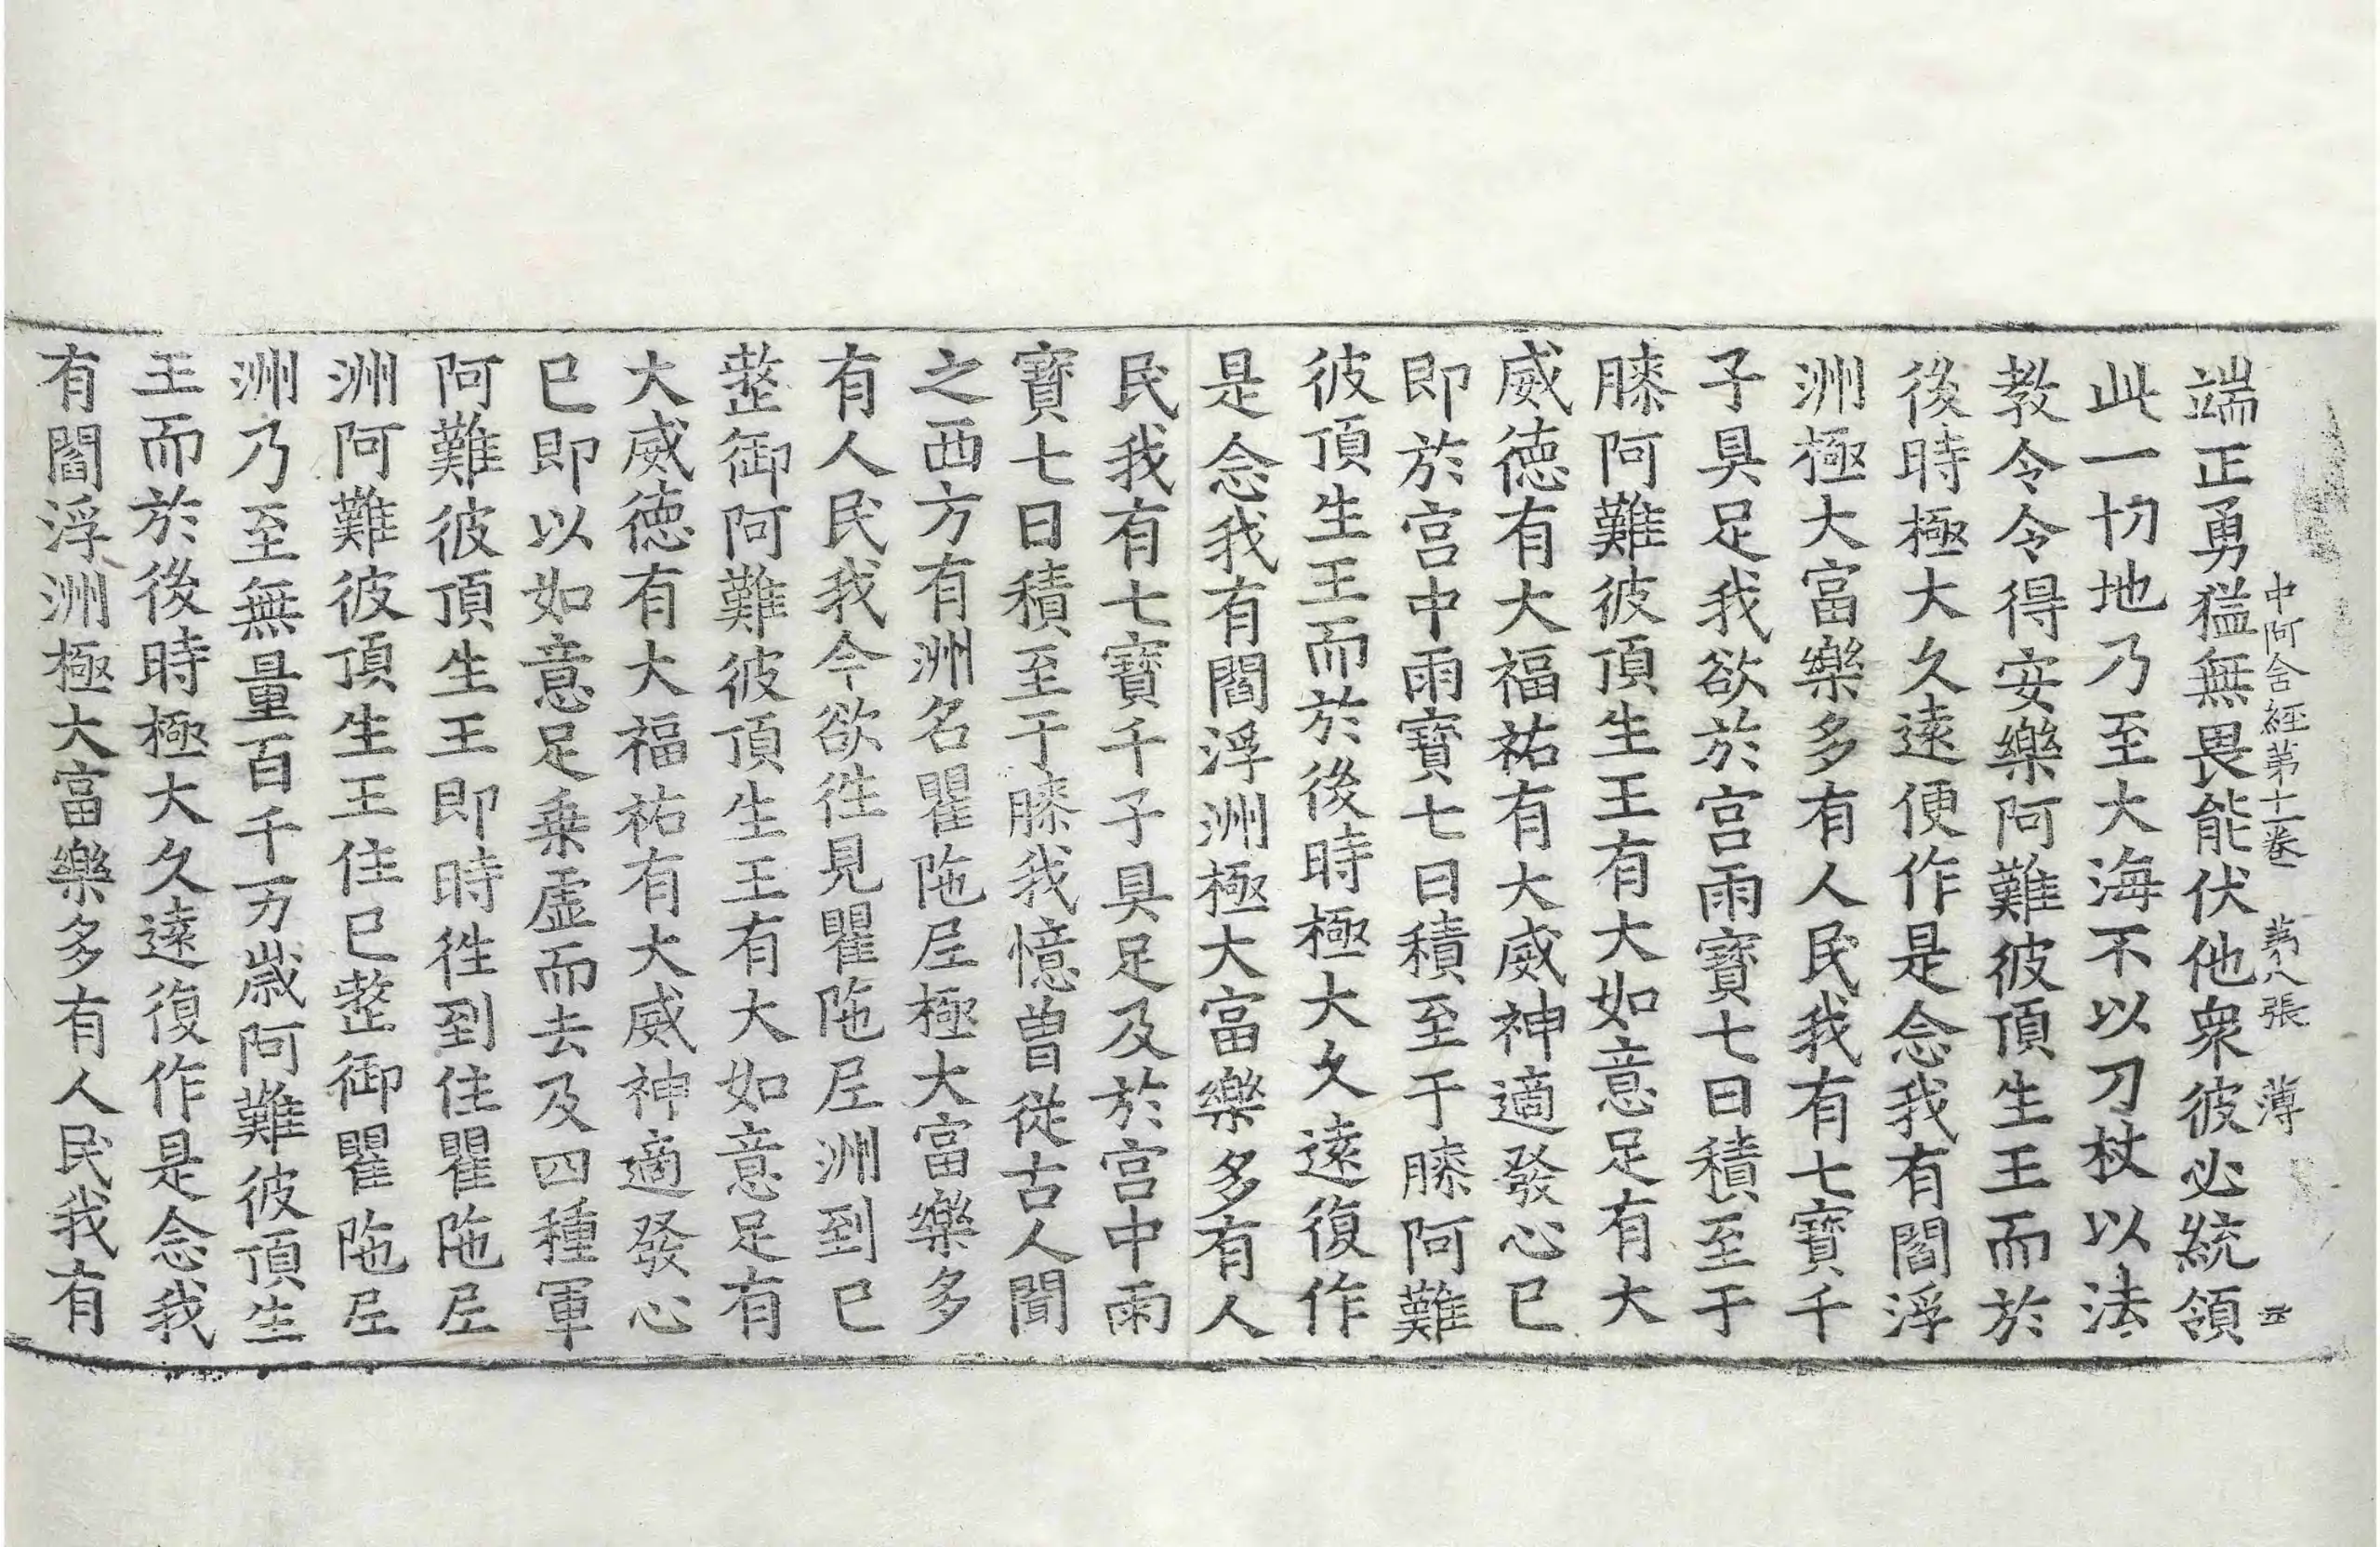 中阿含經第十一卷 第八張 薄
端正勇猛無畏能伏他衆彼必統領
此一切地乃至大海不以刀杖以法
教令令得安樂阿難彼頂生王而於
後時極大久遠便作是念我有閻浮
洲極大富樂多有人民我有七寶千
子具足我欲於宮雨寶七日積至于
膝阿難彼頂生王有大如意足有大
威德有大福祐有大威神適發心已
即於宮中雨寶七日積至于膝阿難
彼頂生王而於後時極大久遠復作
是念我有閻浮洲極大富樂多有人
民我有七寶千子具足及於宮中雨
寶七日積至于膝我憶曽從古人聞
之西方有洲名瞿陁尼極大富樂多
有人民我今欲徃見瞿陁尼洲到已
整御阿難彼頂生王有大如意足有
大威德有大福祐有大威神適發心
已即以如意足乗虛而去及四種軍
阿難彼頂生王即時徃到住瞿陁尼
洲阿難彼頂生王住已整御瞿陁尼
洲乃至無量百千万歲阿難彼頂生
王而於後時極大久遠復作是念我
有閻浮洲極大富樂多有人民我有